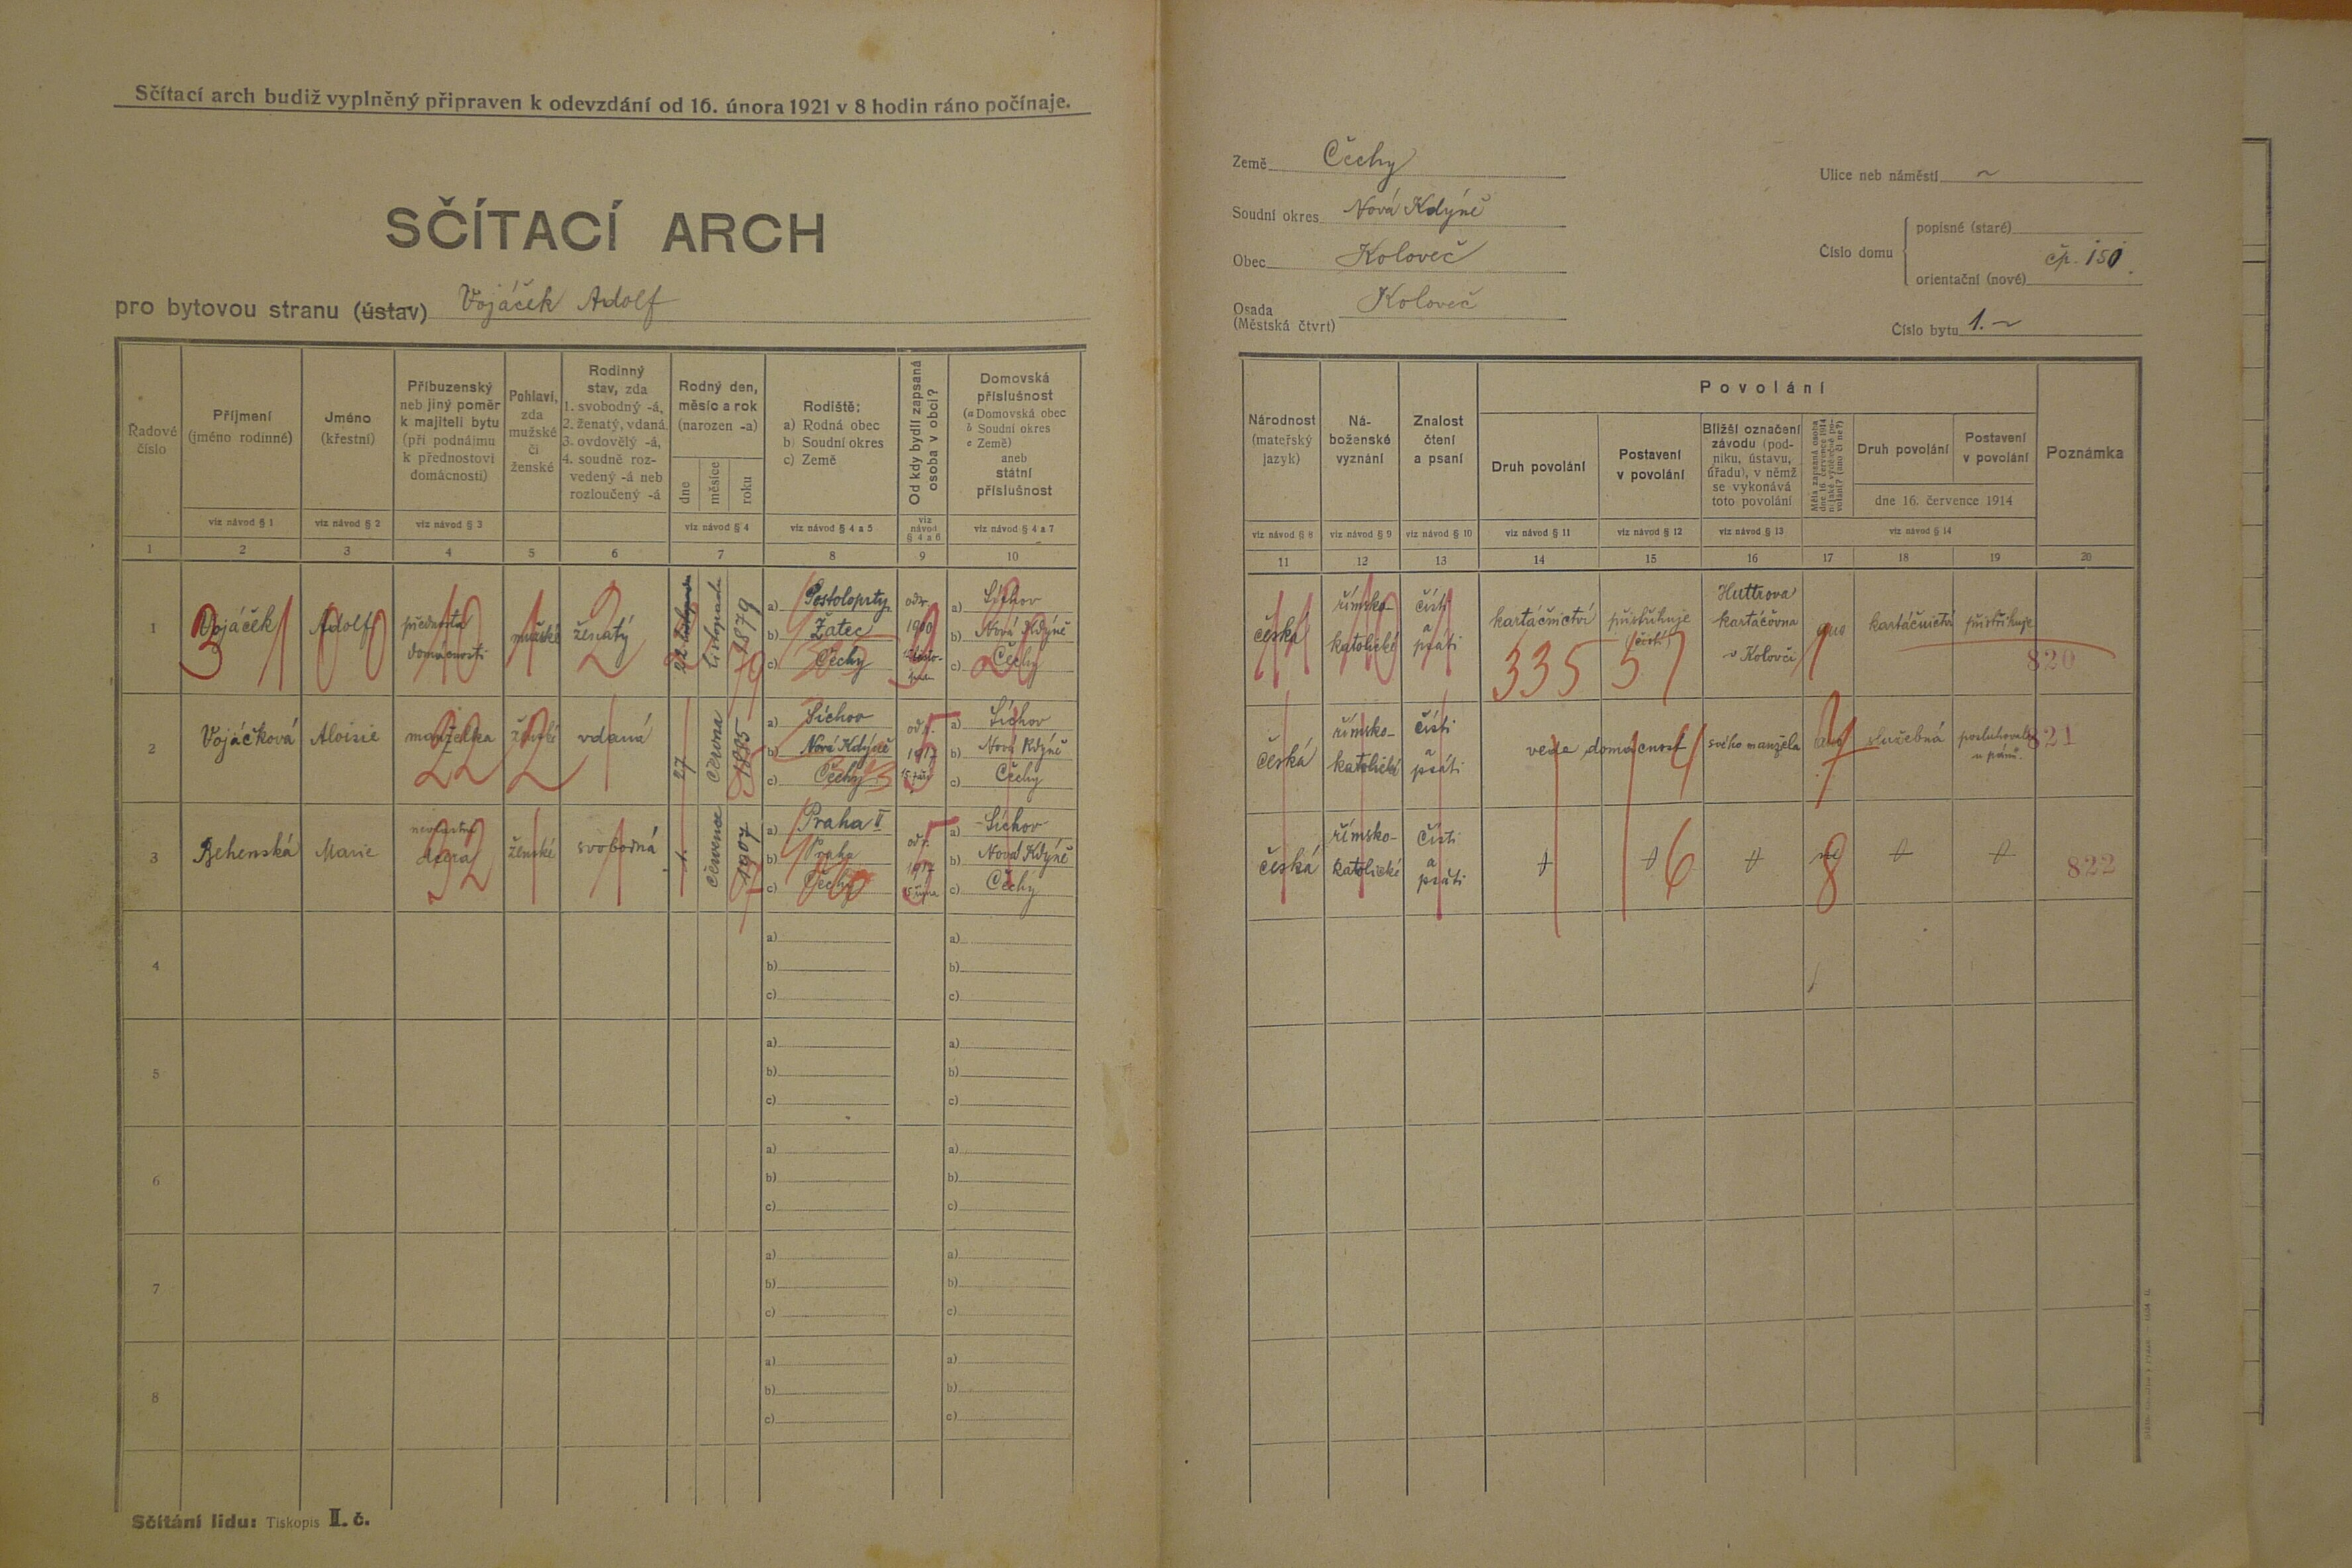 Sčítací arch budiž vyplněný připraven k odevzdání od 16. února 1921 v 8 hodin ráno počínaje.
SČÍTACÍ ARCH
pro bytovou stranu (ústav) Vojáček Adolf
Řadové číslo
Příjmení
(jméno rodinné)
Jméno
(křestní)
Příbuzenský
neb jiný poměr
k majiteli bytu
(při podnájmu
k přednostovi
domácnosti)
Pohlaví,
zda
mužské
či
ženské
Rodinný
stav, zda
1. svobodný -á,
2. ženatý, vdaná
3. ovdovělý -á,
4. soudně roz-
vedený -á neb
rozloučený -á
Rodný den,
měsíc a rok
(narozen -a)
dne
měsíce
roku
Rodiště:
a) Rodná obec
b) Soudní okres
c) Země
Od kdy bydlí zapsaná
osoba v obci?
Domovská
příslušnost
(a Domovská obec
b Soudní okres
c Země)
aneb
státní
příslušnost
viz návod § 1
viz návod § 2
viz návod § 3
viz návod § 4
viz návod § 4 a 5
viz
návod
§ 4 a 6
viz návod § 4 a 7
1 2 3 4 5 6 7 8 9 10
1 Vojáček Adolf přednosta domácnosti mužské ženatý 22 listopadu 1879
a) Postoloprty
b) Žatec
c) Čechy
1900
a) Síchov
b) Nová Kdýně
c) Čechy
2 Vojáčková Aloisie manželka ženské vdaná 27 června 1885
a) Síchov
b) Nová Kdýně
c) Čechy
od
1917
a) Síchov
b) Nová Kdýně
c) Čechy
3 Behenská Marie nevlastní dcera ženské svobodná 1. července 1907
a) Praha II
b) Praha
c) Čechy
od
1917
a) Síchov
b) Nová Kdýně
c) Čechy
4
a)
b)
c)
a)
b)
c)
5
a)
b)
c)
a)
b)
c)
6
a)
b)
c)
a)
b)
c)
7
a)
b)
c)
a)
b)
c)
8
a)
b)
c)
a)
b)
c)
Sčítání lidu: Tiskopis II. č.
Země Čechy
Soudní okres Nová Kdýně
Obec Koloveč
Osada
(Městská čtvrt) Koloveč
Ulice neb náměstí ~
Číslo domu
popisné (staré)
čp. 150
orientační (nové)
Číslo bytu 1. ~
Národnost
(mateřský
jazyk)
Ná-
boženské
vyznání
Znalost
čtení
a psaní
Povolání
Druh povolání
Postavení
v povolání
Bližší označení
závodu (pod-
niku, ústavu,
úřadu), v němž
se vykonává
toto povolání
Měla zapsaná osoba
dne 16. července 1914
nějaké výdělečné po-
volání? (ano či ne?)
Druh povolání
Postavení
v povolání
dne 16. července 1914
Poznámka
viz návod § 8
viz návod § 9
viz návod § 10
viz návod § 11
viz návod § 12
viz návod § 13
viz návod § 14
11 12 13 14 15 16 17 18 19 20
česká
římsko-
katolické
čísti
a
psáti
kartáčnictví
přistřihuje
Huttrova
kartáčovna
v Kolovči
ano
kartáčnictví
přistřihuje
335
820
česká
římsko-
katolické
čísti
a
psáti
vede domácnost
svého manžela
ano
služebná
posluhovala
u pánů.
821
česká
římsko-
katolické
čísti
a
psáti
6
ne
8
822